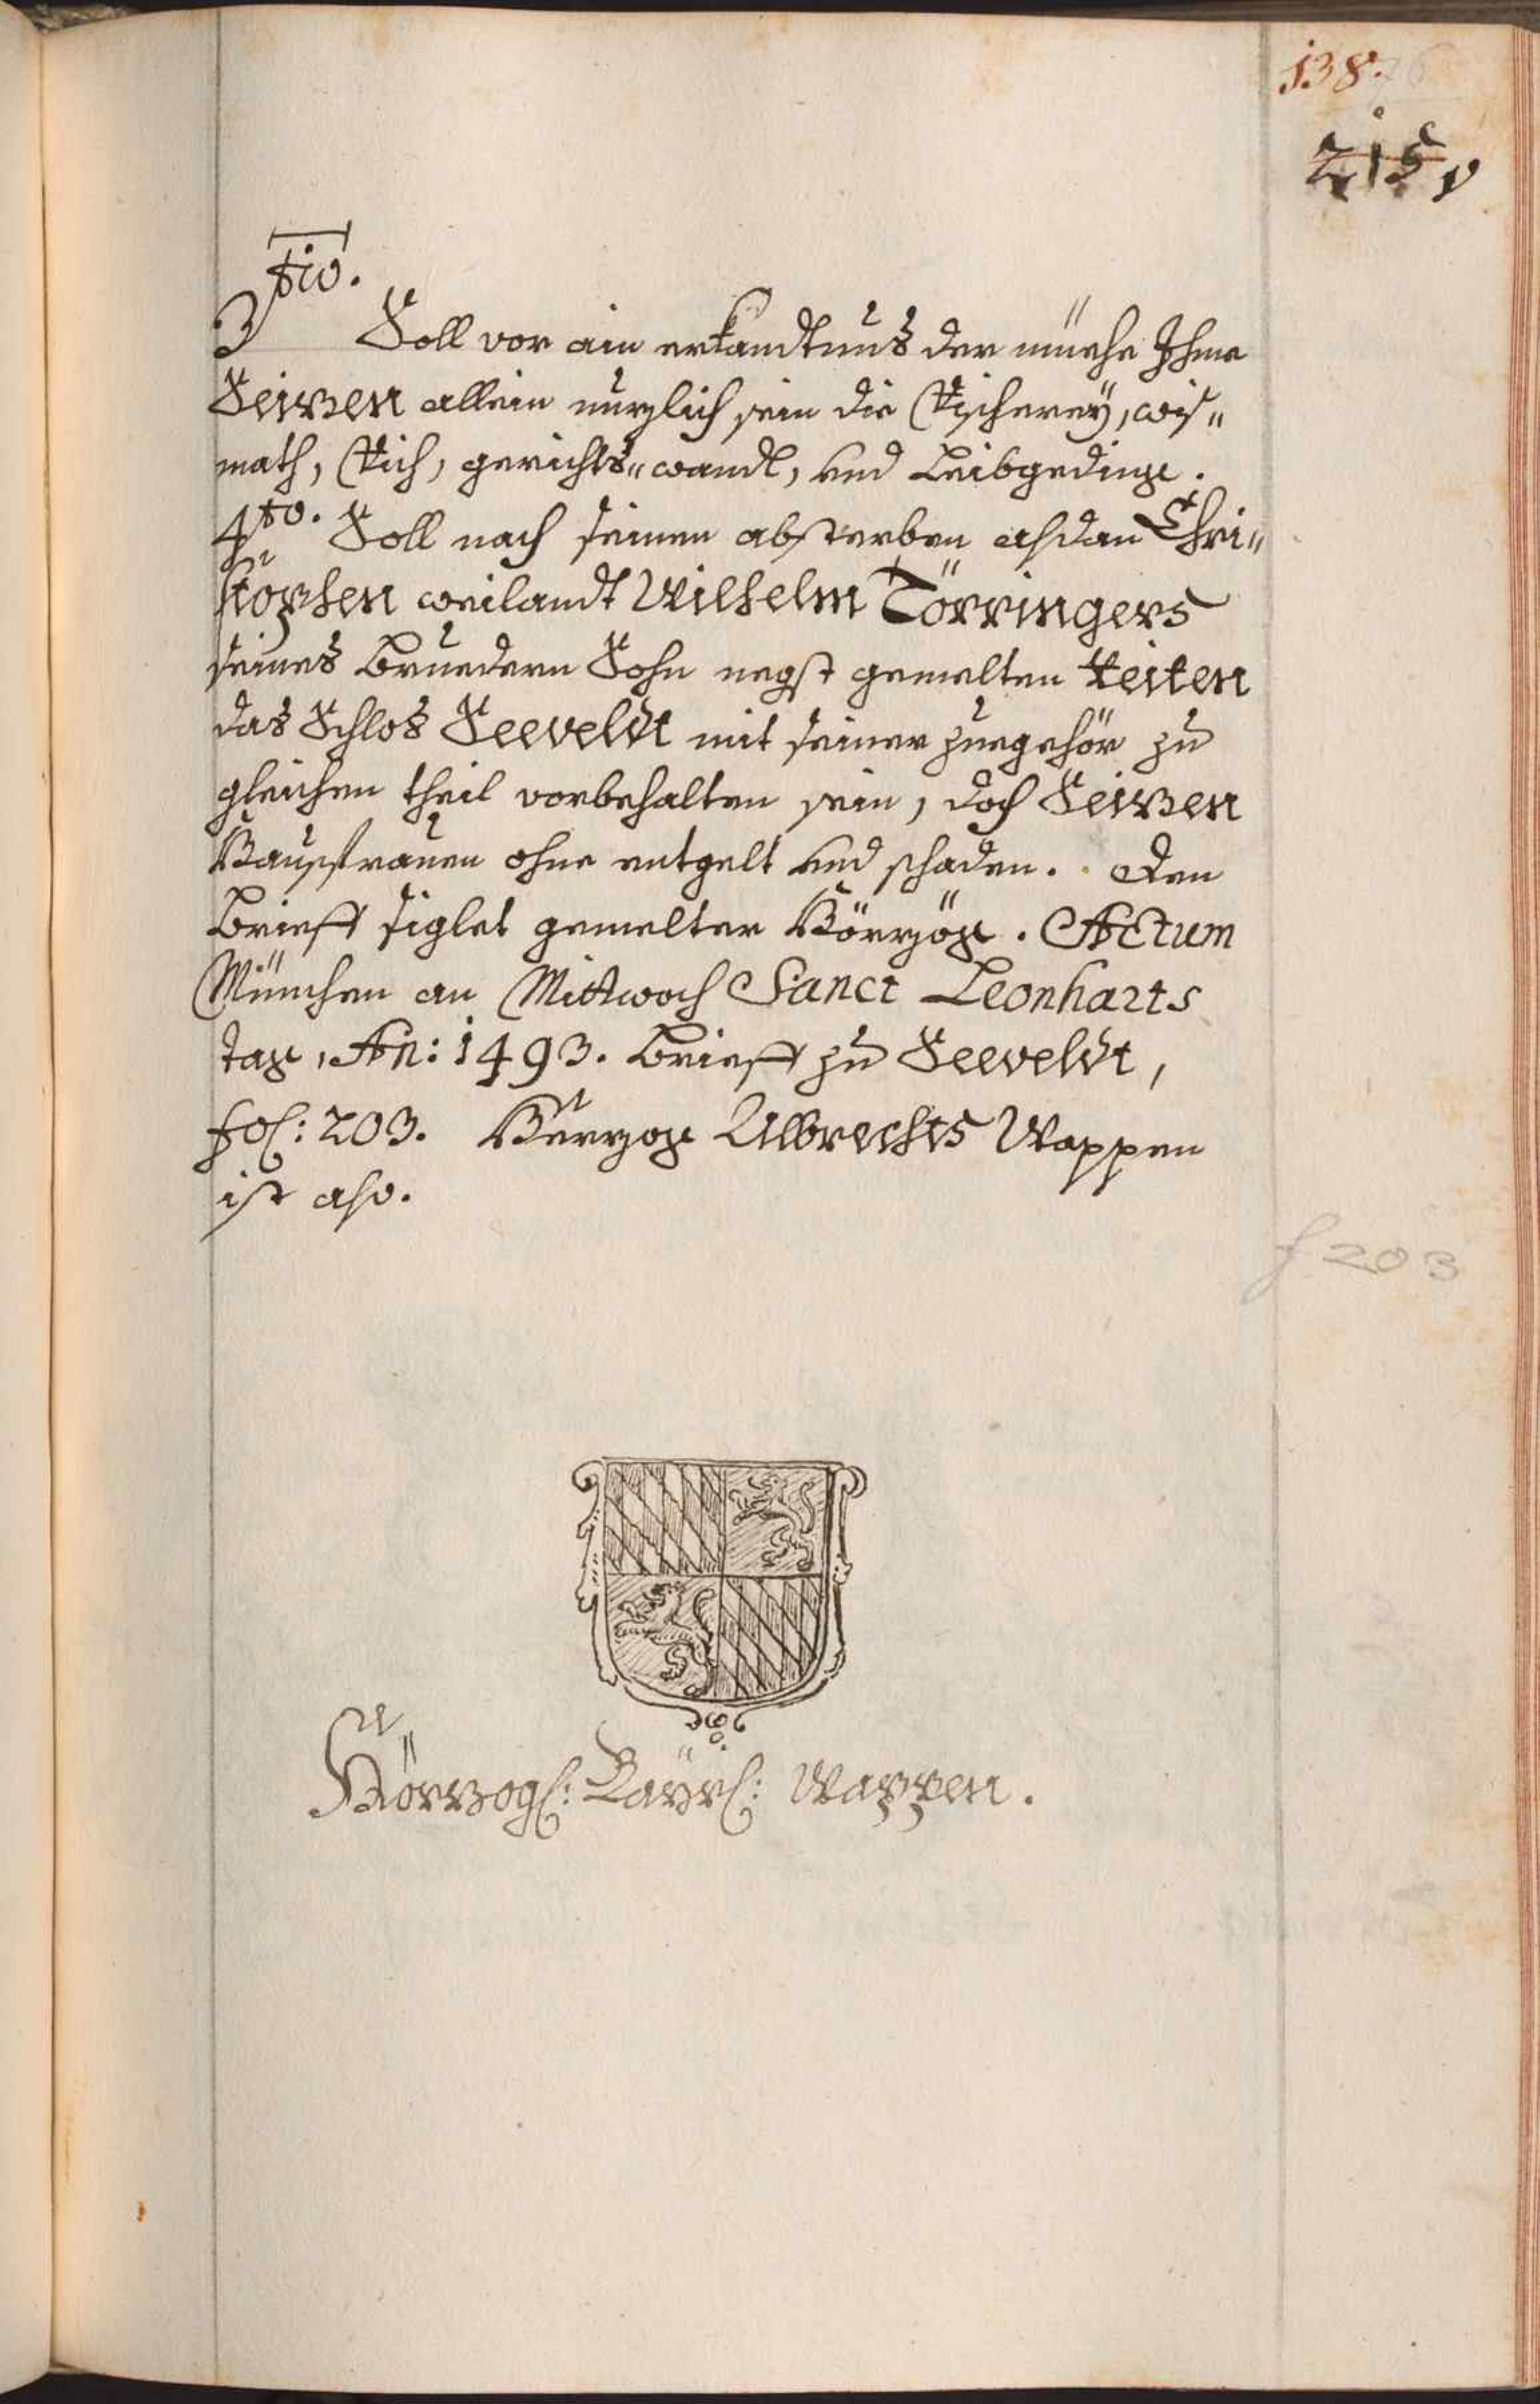 138.
215
3tio. Soll vor ain erkandtnus der müehe Ihme
Seizen allein nuzlich sein die Vischerey, wis„
math, Vich, gerichts„wandl, und Leibgeding.
4to. Soll nach seinen absterben alsdan Chri„
stophen weilandt Wilhelm Törringers
seines Bruedern Sohn negst gemelten Veiten
das Schlos Seeveldt mit seiner zuegehör zu
gleichen theil vorbehalten sein, doch Seizen
Hausfrauen ohne entgelt und schaden. Den
Brieff siglet gemelter Hörzög. Actum
München an Mittwoch Sanct Leonharts
tag, An: 1493. Brieff zu Seeveldt,
fol: 203. Herzog Albrechts Wappen
ist also.
f 203
Hörzogl: Bayrl: Wappen.